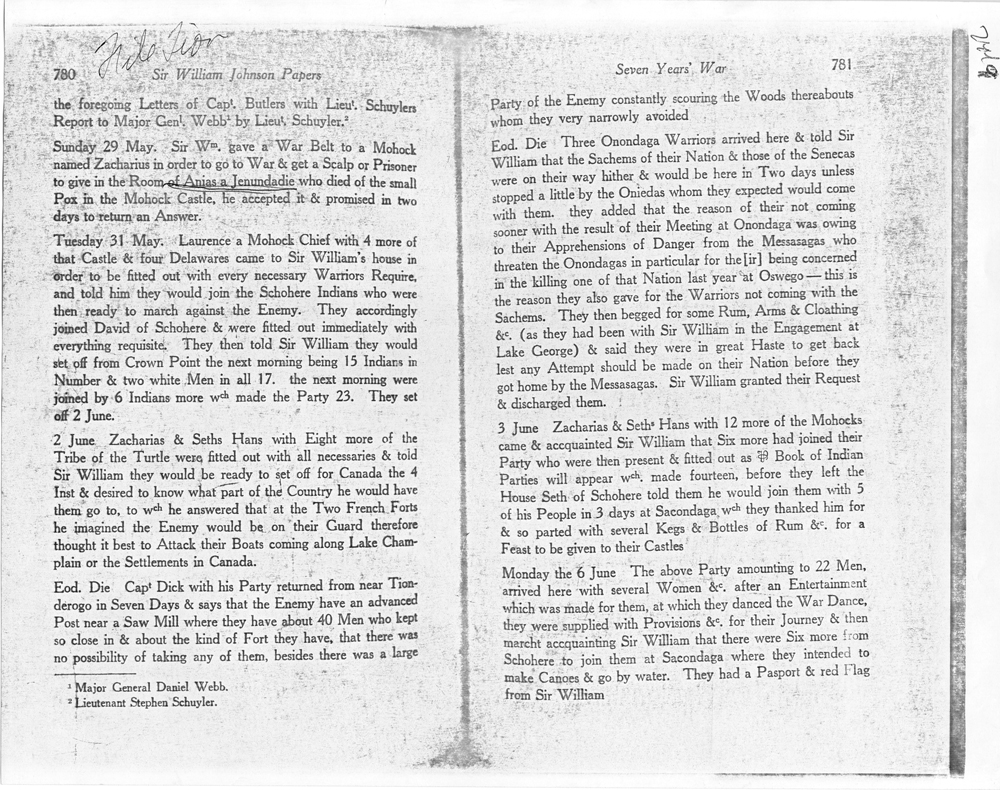 780
Sir William Johnson Papers
the foregoing Letters of Capᵗ. Butlers with Lieuᵗ. Schuylers
Report to Major Genˡ. Webb¹ by Lieuᵗ. Schuyler.²
Sunday 29 May. Sir Wᵐ. gave a War Belt to a Mohock
named Zacharius in order to go to War & get a Scalp or Prisoner
to give in the Room of Anias a Jenundadie who died of the small
Pox in the Mohock Castle, he accepted it & promised in two
days to return an Answer.
Tuesday 31 May. Laurence a Mohock Chief with 4 more of
that Castle & four Delawares came to Sir William's house in
order to be fitted out with every necessary Warriors Require,
and told him they would join the Schohere Indians who were
then ready to march against the Enemy. They accordingly
joined David of Schohere & were fitted out immediately with
everything requisite. They then told Sir William they would
set off from Crown Point the next morning being 15 Indians in
Number & two white Men in all 17. the next morning were
joined by 6 Indians more wᶜʰ made the Party 23. They set
off 2 June.
2 June Zacharias & Seths Hans with Eight more of the
Tribe of the Turtle were fitted out with all necessaries & told
Sir William they would be ready to set off for Canada the 4
Inst & desired to know what part of the Country he would have
them go to, to wᶜʰ he answered that at the Two French Forts
he imagined the Enemy would be on their Guard therefore
thought it best to Attack their Boats coming along Lake Cham-
plain or the Settlements in Canada.
Eod. Die Capᵗ Dick with his Party returned from near Tion-
derogo in Seven Days & says that the Enemy have an advanced
Post near a Saw Mill where they have about 40 Men who kept
so close in & about the kind of Fort they have, that there was
no possibility of taking any of them, besides there was a large
¹ Major General Daniel Webb.
² Lieutenant Stephen Schuyler.
Seven Years' War
781
Party of the Enemy constantly scouring the Woods thereabouts
whom they very narrowly avoided
Eod. Die Three Onondaga Warriors arrived here & told Sir
William that the Sachems of their Nation & those of the Senecas
were on their way hither & would be here in Two days unless
stopped a little by the Oniedas whom they expected would come
with them. they added that the reason of their not coming
sooner with the result of their Meeting at Onondaga was owing
to their Apprehensions of Danger from the Messasagas who
threaten the Onondagas in particular for the[ir] being concerned
in the killing one of that Nation last year at Oswego — this is
the reason they also gave for the Warriors not coming with the
Sachems. They then begged for some Rum, Arms & Cloathing
&ᶜ. (as they had been with Sir William in the Engagement at
Lake George) & said they were in great Haste to get back
lest any Attempt should be made on their Nation before they
got home by the Messasagas. Sir William granted their Request
& discharged them.
3 June Zacharias & Sethˢ Hans with 12 more of the Mohocks
came & accquainted Sir William that Six more had joined their
Party who were then present & fitted out as ⅌ Book of Indian
Parties will appear wᶜʰ. made fourteen, before they left the
House Seth of Schohere told them he would join them with 5
of his People in 3 days at Sacondaga wᶜʰ they thanked him for
& so parted with several Kegs & Bottles of Rum &ᶜ. for a
Feast to be given to their Castles
Monday the 6 June The above Party amounting to 22 Men,
arrived here with several Women &ᶜ. after an Entertainment
which was made for them, at which they danced the War Dance,
they were supplied with Provisions &ᶜ. for their Journey & then
marcht accquainting Sir William that there were Six more from
Schohere to join them at Sacondaga where they intended to
make Canoes & go by water. They had a Pasport & red Flag
from Sir William